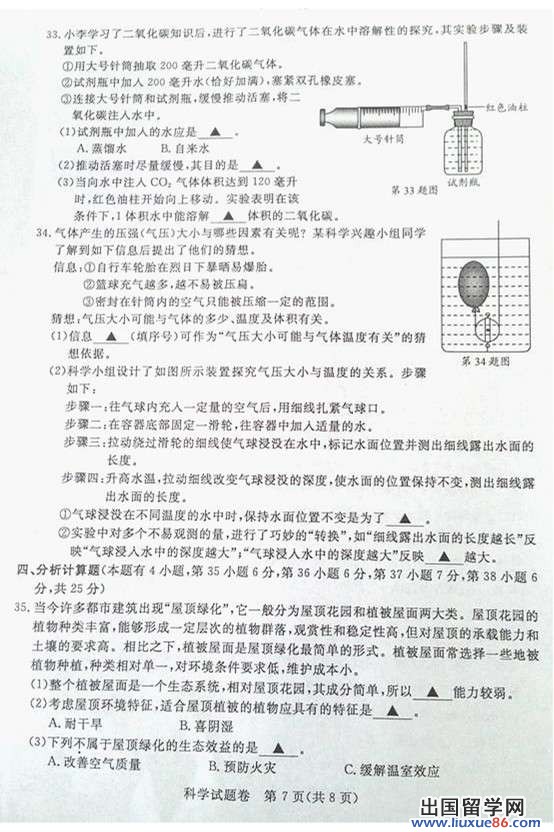 33.小李学习了二氧化碳知识后,进行了二氧化碳气体在水中溶解性的探究,其实验步骤及装
置如下。
①用大号针筒抽取 200 毫升二氧化碳气体。
②试剂瓶中加入 200 毫升水(恰好加满),塞紧双孔橡皮塞。
③连接大号针筒和试剂瓶,缓慢推动活塞,将二
氧化碳注入水中。
(1)试剂瓶中加入的水应是 ▲ 。
A. 蒸馏水 B. 自来水
(2)推动活塞时尽量缓慢,其目的是 ▲ 。
(3)当向水中注入 CO₂ 气体体积达到 120 毫升
时,红色油柱开始向上移动。实验表明在该
条件下,1 体积水中能溶解 ▲ 体积的二氧化碳。
红色油柱
大号针筒
试剂瓶
第 33 题图
34.气体产生的压强(气压)大小与哪些因素有关呢？某科学兴趣小组同学
了解到如下信息后提出了他们的猜想。
信息:①自行车轮胎在烈日下暴晒易爆胎。
②篮球充气越多,越不易被压扁。
③密封在针筒内的空气只能被压缩一定的范围。
猜想:气压大小可能与气体的多少、温度及体积有关。
(1)信息 ▲ (填序号)可作为“气压大小可能与气体温度有关”的猜
想依据。
(2)科学小组设计了如图所示装置探究气压大小与温度的关系。步骤
如下:
第 34 题图
步骤一:往气球内充入一定量的空气后,用细线扎紧气球口。
步骤二:在容器底部固定一滑轮,往容器中加入适量的水。
步骤三:拉动绕过滑轮的细线使气球浸没在水中,标记水面位置并测出细线露出水面的
长度。
步骤四:升高水温,拉动细线改变气球浸没的深度,使水面的位置保持不变,测出细线露
出水面的长度。
①气球浸没在不同温度的水中时,保持水面位置不变是为了 ▲ 。
②实验中对多个不易观测的量,进行了巧妙的“转换”,如“细线露出水面的长度越长”反
映“气球浸入水中的深度越大”;“气球浸入水中的深度越大”反映 ▲ 越大。
四、分析计算题(本题有 4 小题,第 35 小题 6 分,第 36 小题 6 分,第 37 小题 7 分,第 38 小题 6
分,共 25 分)
35.当今许多都市建筑出现“屋顶绿化”,它一般分为屋顶花园和植被屋面两大类。屋顶花园的
植物种类丰富,能够形成一定层次的植物群落,观赏性和稳定性高,但对屋顶的承载能力和
土壤的要求高。相比之下,植被屋面是屋顶绿化最简单的形式。植被屋面常选择一些地被
植物种植,种类相对单一,对环境条件要求低,维护成本小。
(1)整个植被屋面是一个生态系统,相对屋顶花园,其成分简单,所以 ▲ 能力较弱。
(2)考虑屋顶环境特征,适合屋顶植被的植物应具有的特征是 ▲ 。
A. 耐干旱 B. 喜阴湿
(3)下列不属于屋顶绿化的生态效益的是 ▲ 。
A. 改善空气质量 B. 预防火灾 C. 缓解温室效应
科学试题卷 第 7 页(共 8 页)
出国留学网
www.liuxue86.com